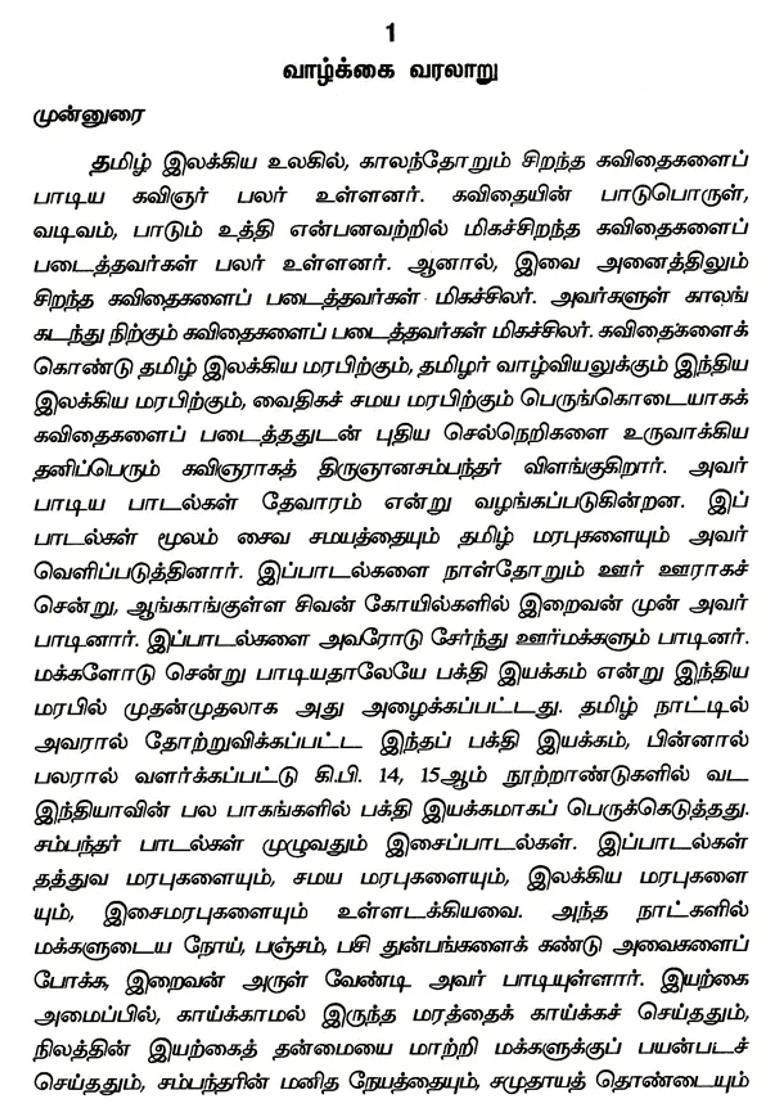 1
வாழ்க்கை வரலாறு
முன்னுரை
தமிழ் இலக்கிய உலகில், காலந்தோறும் சிறந்த கவிதைகளைப்
பாடிய கவிஞர் பலர் உள்ளனர். கவிதையின் பாடுபொருள்,
வடிவம், பாடும் உத்தி என்பனவற்றில் மிகச்சிறந்த கவிதைகளைப்
படைத்தவர்கள் பலர் உள்ளனர். ஆனால், இவை அனைத்திலும்
சிறந்த கவிதைகளைப் படைத்தவர்கள் மிகச்சிலர். அவர்களுள் காலங்
கடந்து நிற்கும் கவிதைகளைப் படைத்தவர்கள் மிகச்சிலர். கவிதைகளைக்
கொண்டு தமிழ் இலக்கிய மரபிற்கும், தமிழர் வாழ்வியலுக்கும் இந்திய
இலக்கிய மரபிற்கும், வைதிகச் சமய மரபிற்கும் பெருங்கொடையாகக்
கவிதைகளைப் படைத்ததுடன் புதிய செல்நெறிகளை உருவாக்கிய
தனிப்பெரும் கவிஞராகத் திருஞானசம்பந்தர் விளங்குகிறார். அவர்
பாடிய பாடல்கள் தேவாரம் என்று வழங்கப்படுகின்றன. இப்
பாடல்கள் மூலம் சைவ சமயத்தையும் தமிழ் மரபுகளையும் அவர்
வெளிப்படுத்தினார். இப்பாடல்களை நாள்தோறும் ஊர் ஊராகச்
சென்று, ஆங்காங்குள்ள சிவன் கோயில்களில் இறைவன் முன் அவர்
பாடினார். இப்பாடல்களை அவரோடு சேர்ந்து ஊர்மக்களும் பாடினர்.
மக்களோடு சென்று பாடியதாலேயே பக்தி இயக்கம் என்று இந்திய
மரபில் முதன்முதலாக அது அழைக்கப்பட்டது. தமிழ் நாட்டில்
அவரால் தோற்றுவிக்கப்பட்ட இந்தப் பக்தி இயக்கம், பின்னால்
பலரால் வளர்க்கப்பட்டு கி.பி. 14, 15ஆம் நூற்றாண்டுகளில் வட
இந்தியாவின் பல பாகங்களில் பக்தி இயக்கமாகப் பெருக்கெடுத்தது.
சம்பந்தர் பாடல்கள் முழுவதும் இசைப்பாடல்கள். இப்பாடல்கள்
தத்துவ மரபுகளையும், சமய மரபுகளையும், இலக்கிய மரபுகளை
யும், இசைமரபுகளையும் உள்ளடக்கியவை. அந்த நாட்களில்
மக்களுடைய நோய், பஞ்சம், பசி துன்பங்களைக் கண்டு அவைகளைப்
போக்க, இறைவன் அருள் வேண்டி அவர் பாடியுள்ளார். இயற்கை
அமைப்பில், காய்க்காமல் இருந்த மரத்தைக் காய்க்கச் செய்ததும்,
நிலத்தின் இயற்கைத் தன்மையை மாற்றி மக்களுக்குப் பயன்படச்
செய்ததும், சம்பந்தரின் மனித நேயத்தையும், சமுதாயத் தொண்டையும்